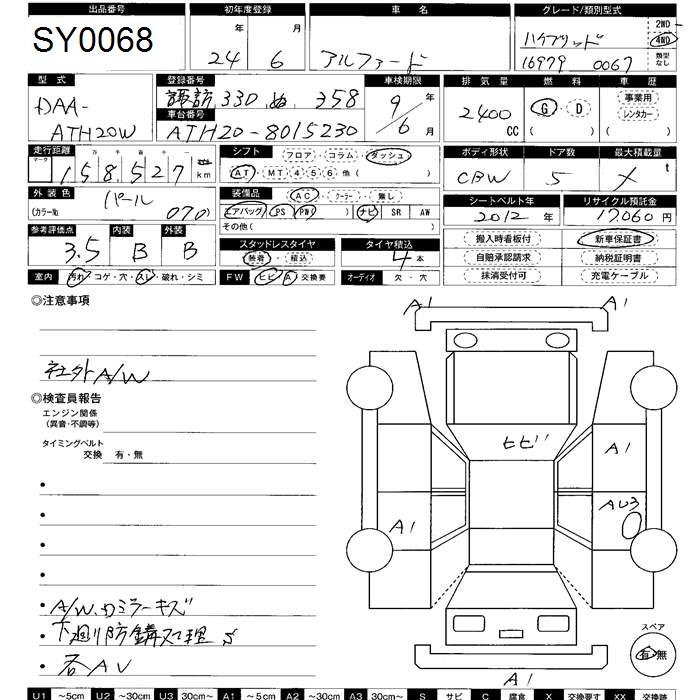 出品番号 初年度登録 車名 グレード/類別型式
SY0068 24年 6月 アルファード ハイブリッド 2WD 4WD
16979 0067 類型なし
型式 登録番号 諏訪 330 ぬ 358 車検期限 排気量 燃料 車歴
DAA- 9年 2400 G・D 事業用
ATH20W 車台番号 ATH20-8015230 6月 CC ( ) レンタカー ( )
走行距離 シフト フロア・コラム・ダッシュ ボディ形状 ドア数 最大積載量
マーク 十万千百十一
158527km AT・MT 4 5 6 他( ) CBW 5 X t
外装色 パール 装備品 AC・クーラー・無し シートベルト年 リサイクル預託金
(カラー№ 070) エアバッグ PS PW ナビ SR AW 2012年 17060円
その他( )
参考評価点 内装 外装 スタッドレスタイヤ タイヤ積込 搬入時看板付 新車保証書
3.5 B B 装着・積込 4本 自賠承認請求 納税証明書
室内 汚れ・コゲ・穴・スレ・破れ・シミ FW ヒビ A 交換要 オーディオ 欠・穴 抹消受付可 充電ケーブル
◎注意事項
社外A/W
◎検査員報告
エンジン関係
(異音・不調等)
タイミングベルト
交換 有・無
・A/W.Dミラーキズ
・下廻り防錆処理 S
・各AU
A1 A1
ヒビ A1
A1 AU3
A1
スペア
有・無
U1 ~5cm U2 ~30cm U3 30cm~ A1 ~5cm A2 ~30cm A3 30cm~ S サビ C 腐食 X 交換要す XX 交換跡